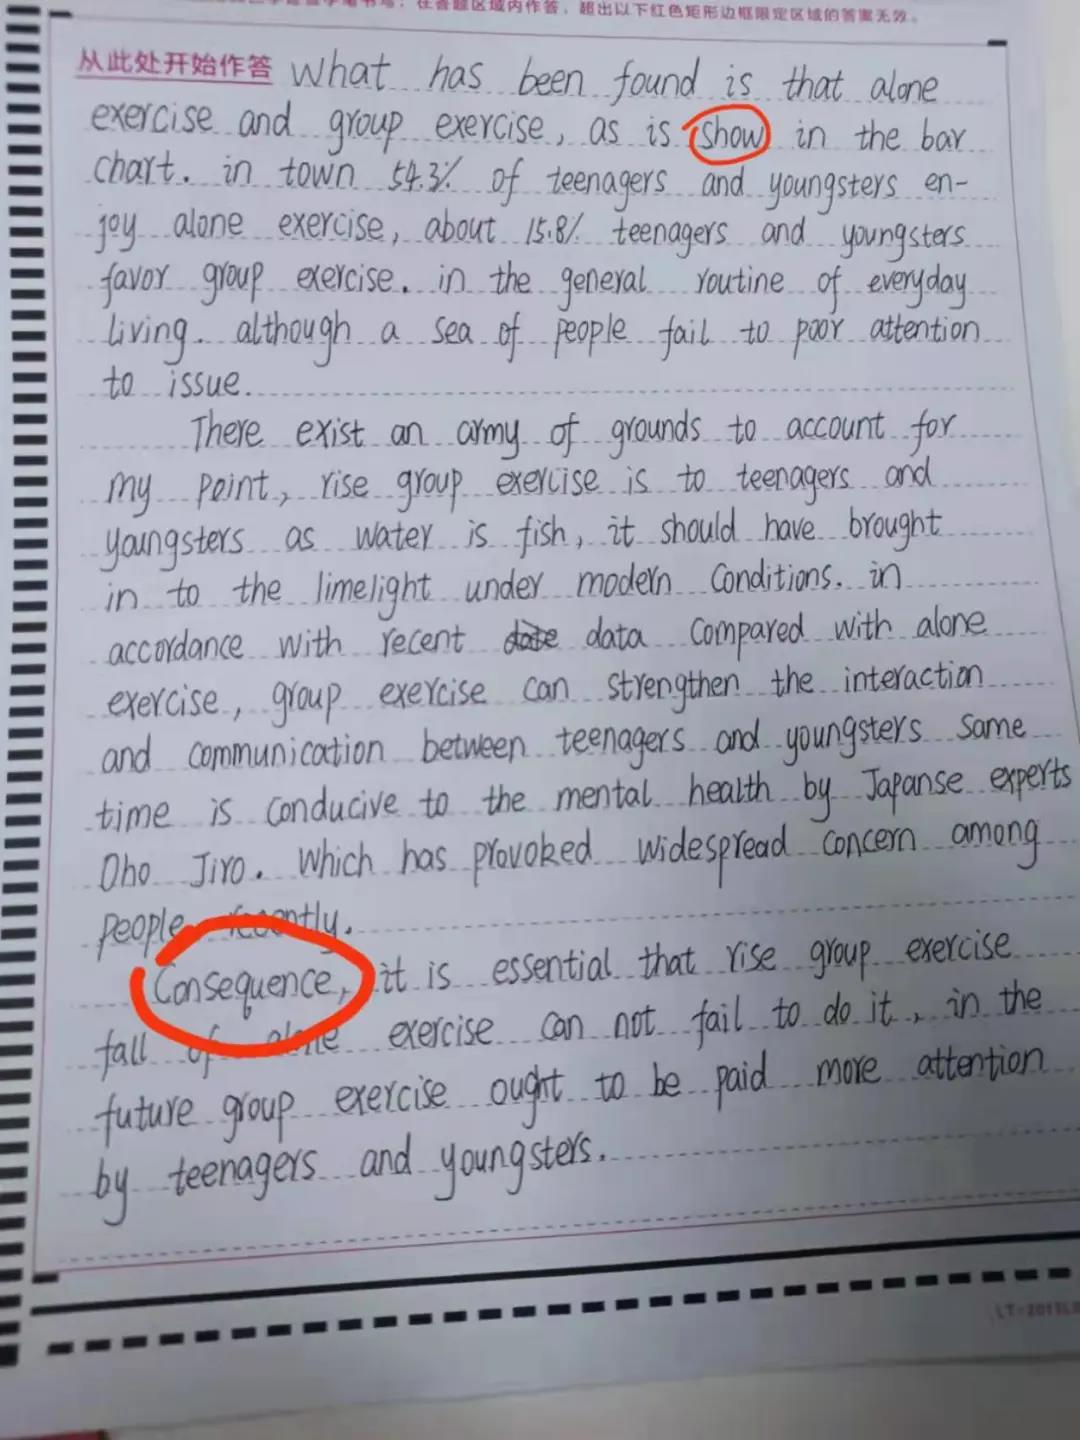 在答题区域内作答，超出以下红色矩形边框限定区域的答案无效。
从此处开始作答 What has been found is that alone
exercise and group exercise, as is show in the bar
chart. in town 54.3% of teenagers and youngsters en-
joy alone exercise, about 15.8% teenagers and youngsters
favor group exercise. in the general routine of everyday
living. although a sea of people fail to poor attention
to issue.
There exist an army of grounds to account for
my point, rise group exercise is to teenagers and
youngsters as water is fish, it should have brought
in to the limelight under modern conditions. in
accordance with recent data compared with alone
exercise, group exercise can strengthen the interaction
and communication between teenagers and youngsters same
time is conducive to the mental health by Japanse experts
Oho Jiro. which has provoked widespread concern among
people recently.
Consequence, it is essential that rise group exercise
fall of alone exercise can not fail to do it, in the
future group exercise ought to be paid more attention
by teenagers and youngsters.